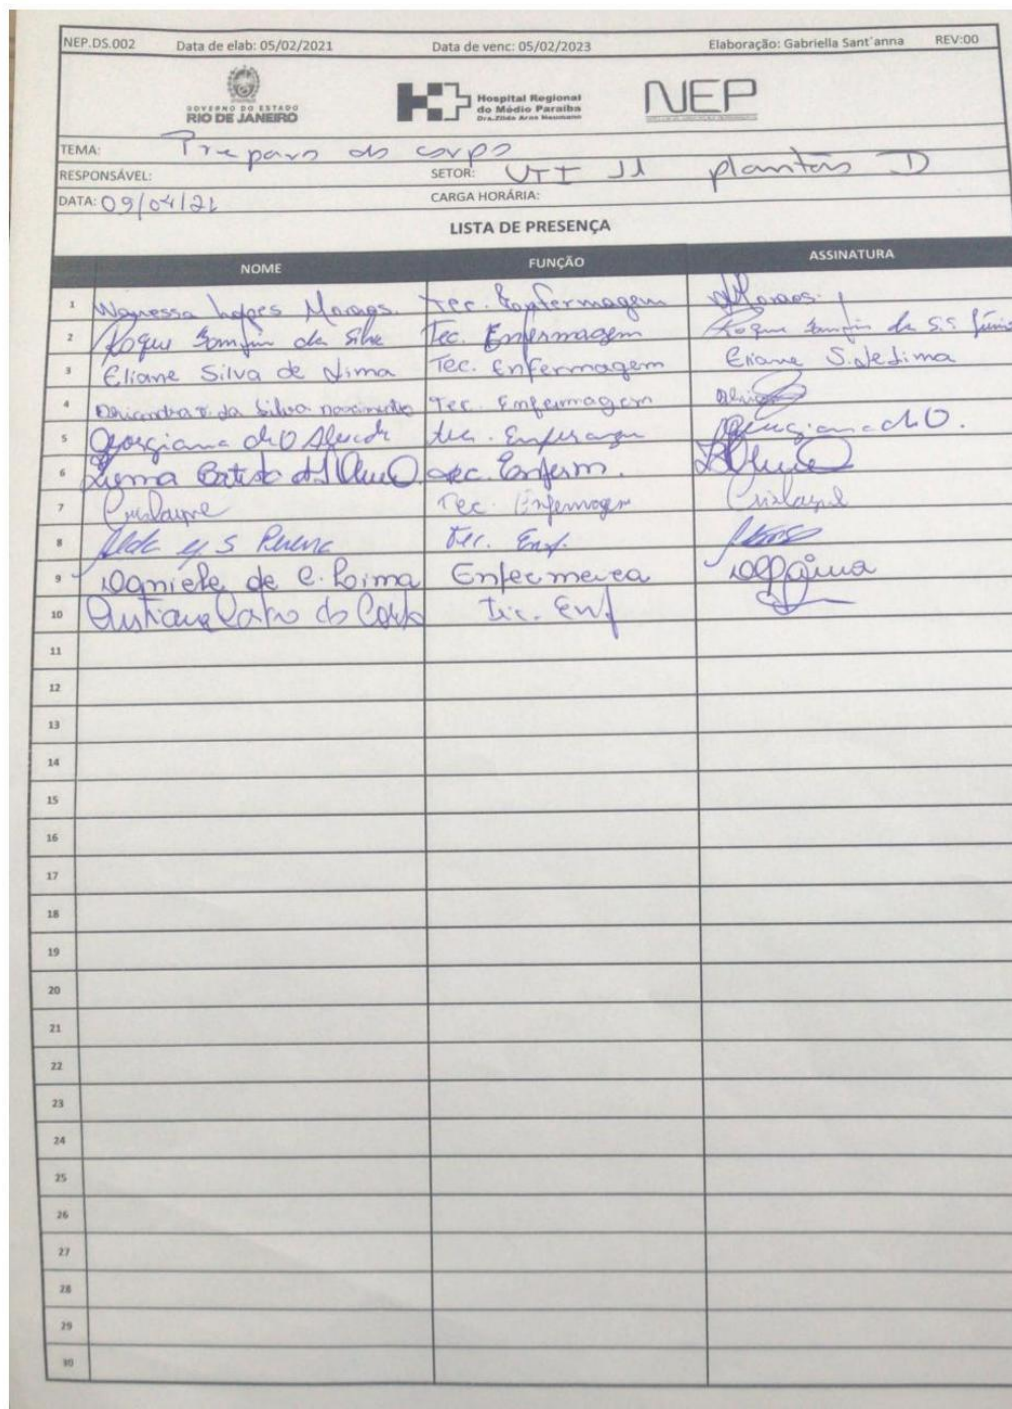 NEP.DS.002 Data de elab: 05/02/2021 Data de venc: 05/02/2023 Elaboração: Gabriella Sant´anna REV:00
GOVERNO DO ESTADO
RIO DE JANEIRO
Hospital Regional
do Médio Paraíba
Dra. Zilda Arns Neumann
NEP
TEMA: Preparo do corpo
RESPONSÁVEL: SETOR: UTI II plantão D
DATA: 09/04/21 CARGA HORÁRIA:
LISTA DE PRESENÇA
NOME FUNÇÃO ASSINATURA
1 Wanessa Lopes Moraes. Tec. Enfermagem Moraes.
2 Roque da Silva Tec. Enfermagem Roque da S.S. Júnior
3 Eliane Silva de Lima Tec. Enfermagem Eliane S. de Lima
4 da Silva nascimento Tec. Enfermagem
5 Georgiana de O Tec. Georgiana de O.
6 Batista Tec. Enferm.
7 Tec. Enfermagem
8 S Tec. Enf.
9 de C. Enfermeira
10 Tec. Enf
11
12
13
14
15
16
17
18
19
20
21
22
23
24
25
26
27
28
29
30